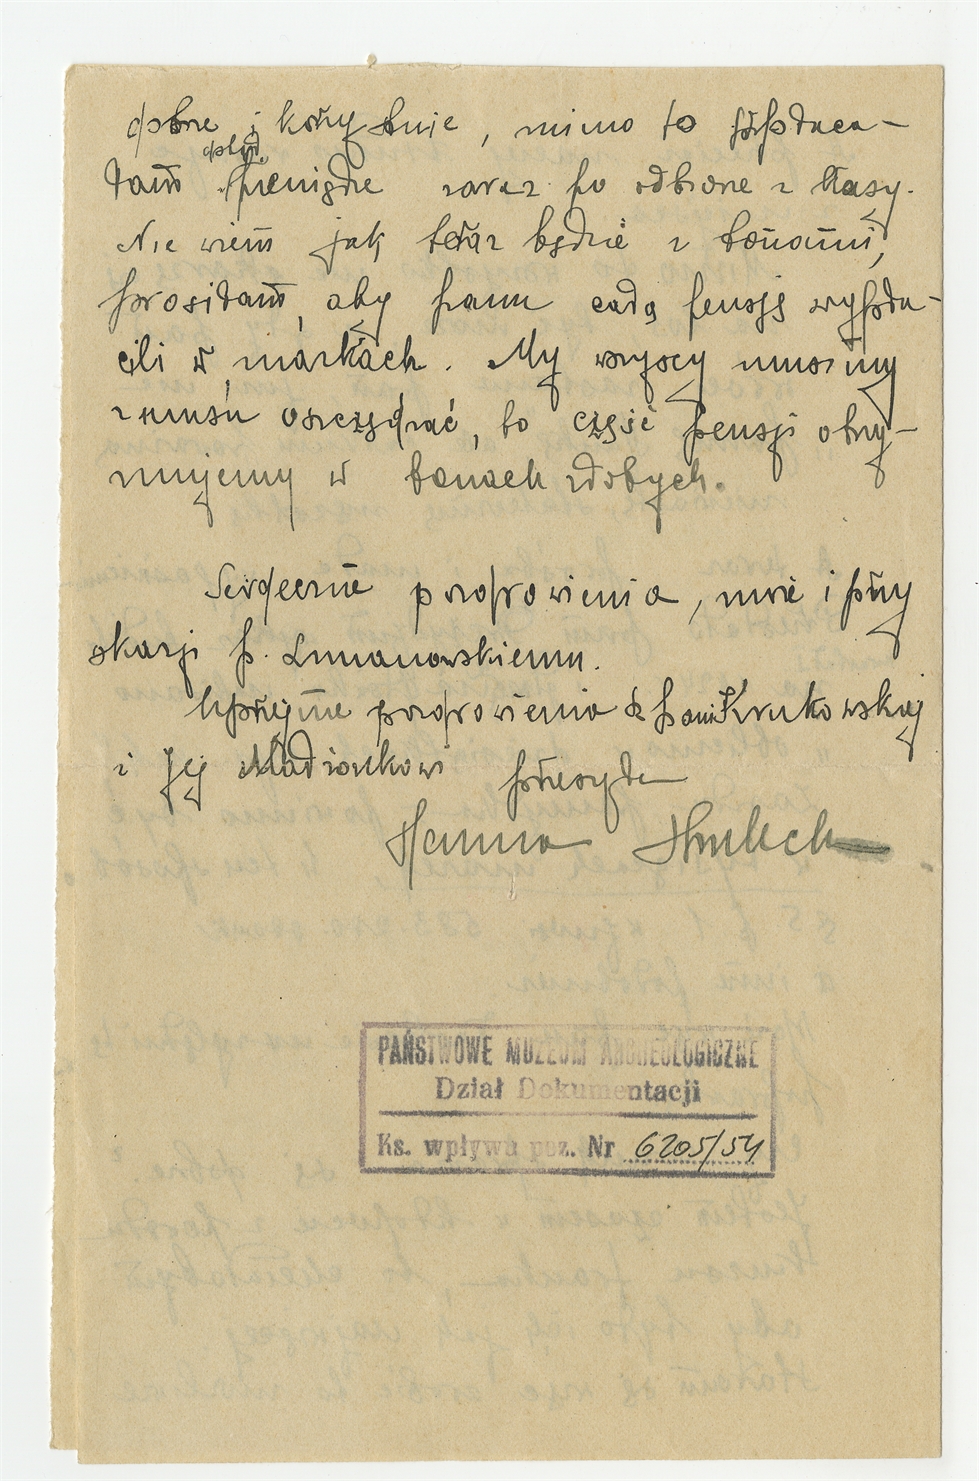 dobre i korzystnie, mimo to
tam pieniądze zaraz po odbiorze z kasy.
Nie wiem jak teraz będzie z bonami,
prosiłam, aby panu całą pensję wypła-
cili w markach. My wszyscy musimy
z musu oszczędzać, bo część pensji otrzy-
mujemy w bonach zdobych.
Serdeczne pozdrowienia, mnie i przy
okazji p.
Uprzejme pozdrowienia dla pani Krukowskiej
i Jej Małżonkowi przesyła
Hanna
PAŃSTWOWE MUZEUM ARCHEOLOGICZNE
Dział Dokumentacji
Ks. wpływu poz. Nr 6205/54